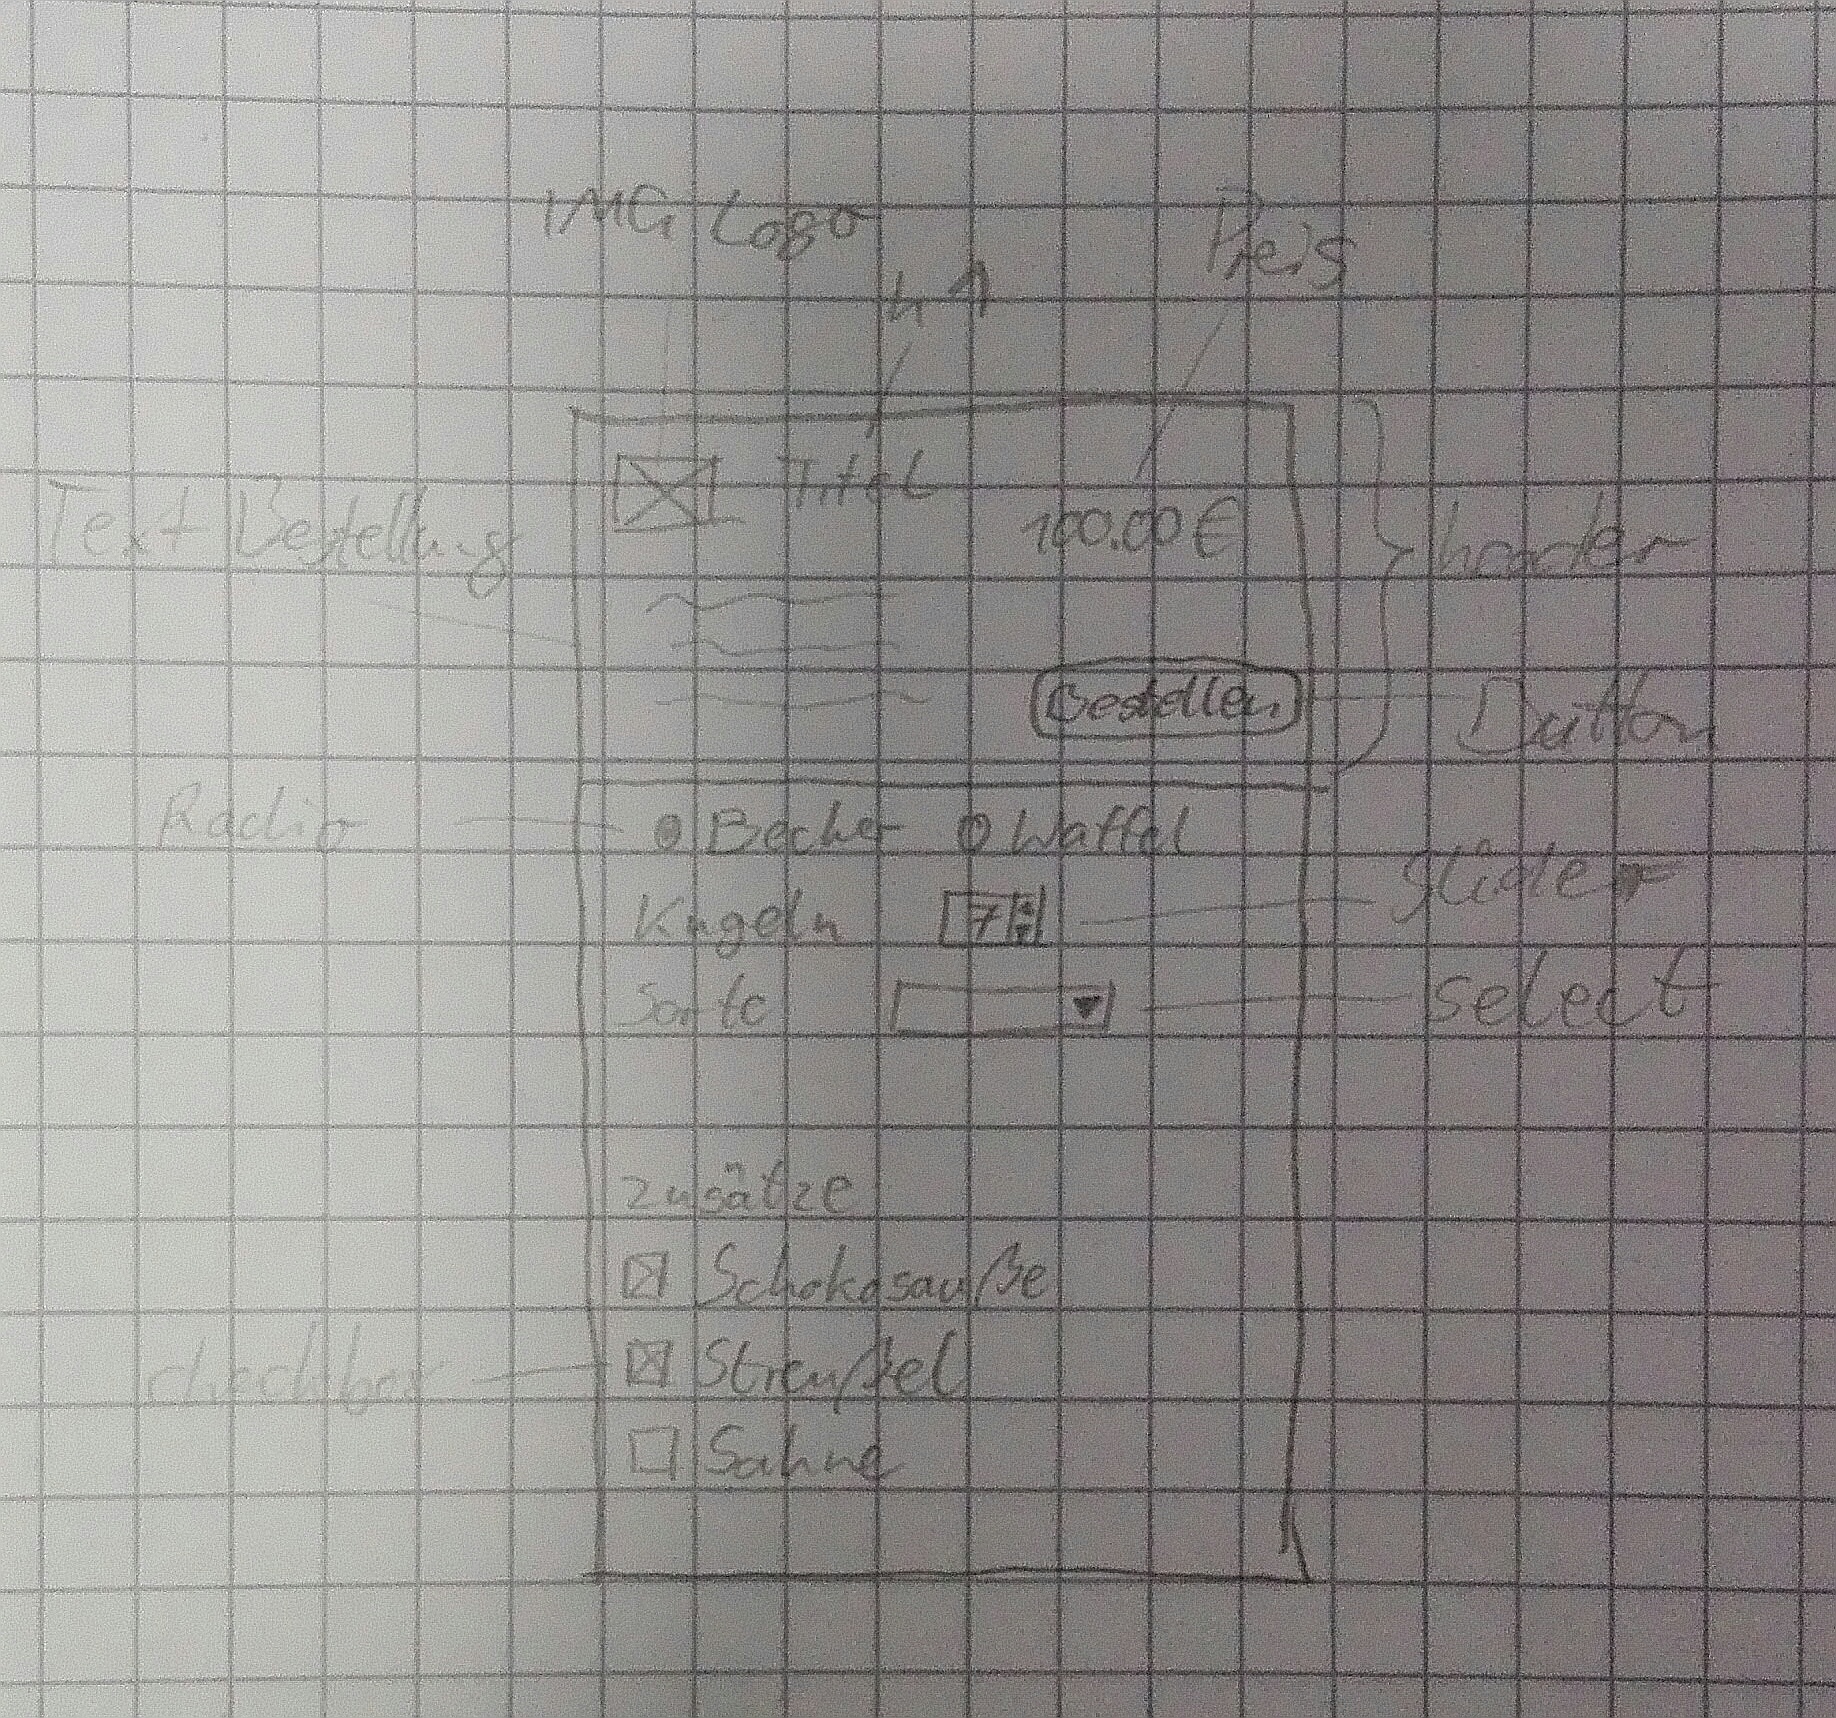 IMG Logo
Preis
h1
Titel
Text Bestellung
100.00€
header
Bestellen
Button
Radio
Becher Waffel
Slider
Kugeln 7
Sorte
select
Zusätze
Schokosauße
Streußel
checkbox
Sahne